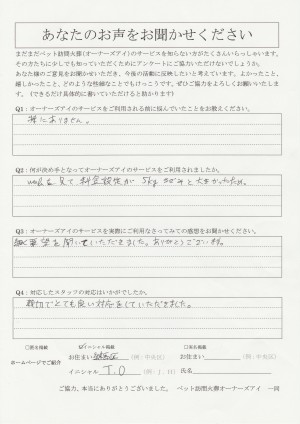 あなたのお声をお聞かせください
まだまだペット訪問火葬(オーナーズアイ)のサービスを知らない方がたくさんいらっしゃいます。
その方たちに少しでも知っていただくためにアンケートにご協力いただけないでしょうか。
あなた様のご意見をお聞かせいただき、今後の活動に反映したいと考えています。よかったこと、
嬉しかったこと、どのような些細なことでもけっこうです、ぜひご協力をよろしくお願いいたします。
(できるだけ具体的に書いていただけると助かります)
Q1：オーナーズアイのサービスをご利用される前に悩んでいたことをお教えください。
特にありません。
Q2：何が決め手となってオーナーズアイのサービスをご利用されましたか。
webを見て料金設定が5kg
大きかったため。
Q3：オーナーズアイのサービスを実際にご利用なさってみての感想をお聞かせください。
要望を聞いていただきました。ありがとうございます。
Q4：対応したスタッフの対応はいかがでしたか。
親切でとても良い対応をしていただきました。
ホームページでご紹介
□匿名掲載
☑イニシャル掲載
□実名掲載
お住まい (例：中央区)
お住まい (例：中央区)
イニシャル T.O (例：J.H)
氏名
ご協力、本当にありがとうございました。 ペット訪問火葬オーナーズアイ 一同